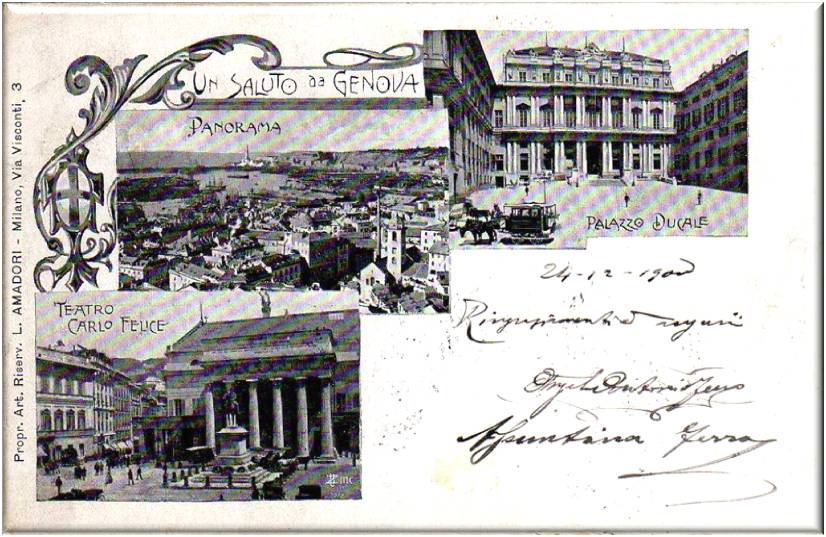 Propr. Art. Riserv. L. AMADORI - Milano, Via Visconti, 3
UN SALUTO da GENOVA
PANORAMA
PALAZZO DUCALE
TEATRO
CARLO FELICE
24-12-900
Ringraziamenti e auguri